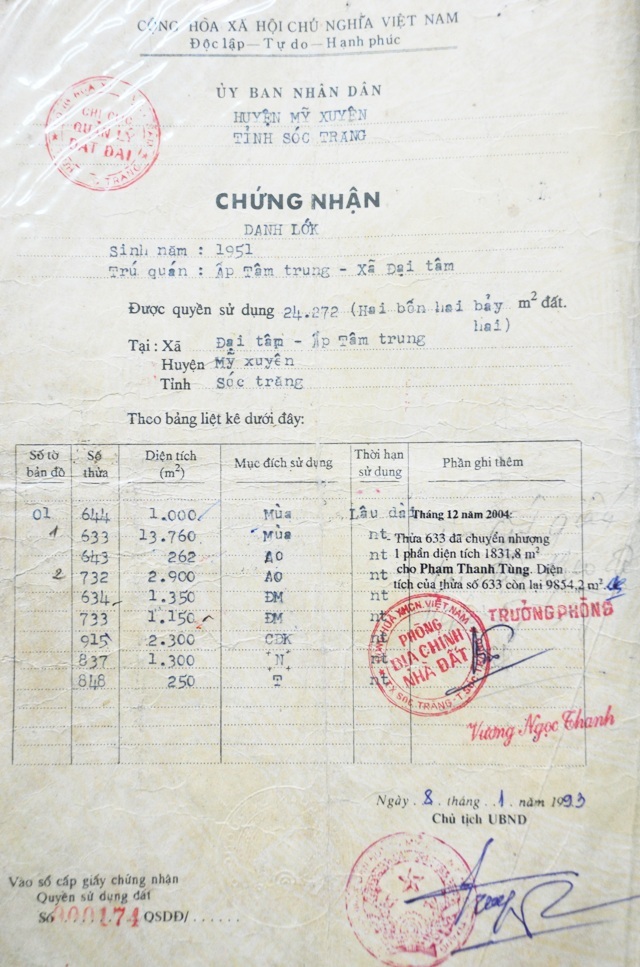 CỘNG HÒA XÃ HỘI CHỦ NGHĨA VIỆT NAM
Độc lập – Tự do – Hạnh phúc
ỦY BAN NHÂN DÂN
HUYỆN MỸ XUYÊN
TỈNH SÓC TRANG
CHI CỤC
QUẢN LÝ
ĐẤT ĐAI
CHỨNG NHẬN
DANH LỚK
Sinh năm : 1951
Trú quán : Ấp Tâm trung - Xã Đại tâm
Được quyền sử dụng 24.272 (Hai bốn hai bảy hai) m² đất.
Tại : Xã Đại tâm - Ấp Tâm trung
Huyện Mỹ xuyên
Tỉnh Sóc trăng
Theo bảng liệt kê dưới đây:
Số tờ bản đồ | Số thửa | Diện tích (m²) | Mục đích sử dụng | Thời hạn sử dụng | Phần ghi thêm
01 644 1.000 Mùa Lâu dài Tháng 12 năm 2004:
1 633 13.760 Mùa nt Thửa 633 đã chuyển nhượng
643 262 AO nt 1 phần diện tích 1831,8 m²
2 732 2.900 AO nt cho Phạm Thanh Tùng. Diện
634 1.350 ĐM nt tích của thửa số 633 còn lại 9854,2 m².
733 1.150 ĐM nt
915 2.300 CĐK nt
837 1.300 "N" nt
848 250 T nt
PHÒNG
ĐỊA CHÍNH
NHÀ ĐẤT
TX SÓC TRĂNG - T. SÓC TRĂNG
TRƯỞNG PHÒNG
Vương Ngọc Thanh
Ngày . 8 . tháng . . 1 . năm 1993
Chủ tịch UBND
Vào sổ cấp giấy chứng nhận
Quyền sử dụng đất
Số 000174 QSDĐ/ . . . . . .